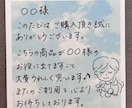 〇〇 様
このたびは ご購入頂き誠に
ありがとうございます。
こちらの商品が 〇〇様の
お役に立てますと
大変うれしく思います♪
またのご利用を心より
お待ちしております。